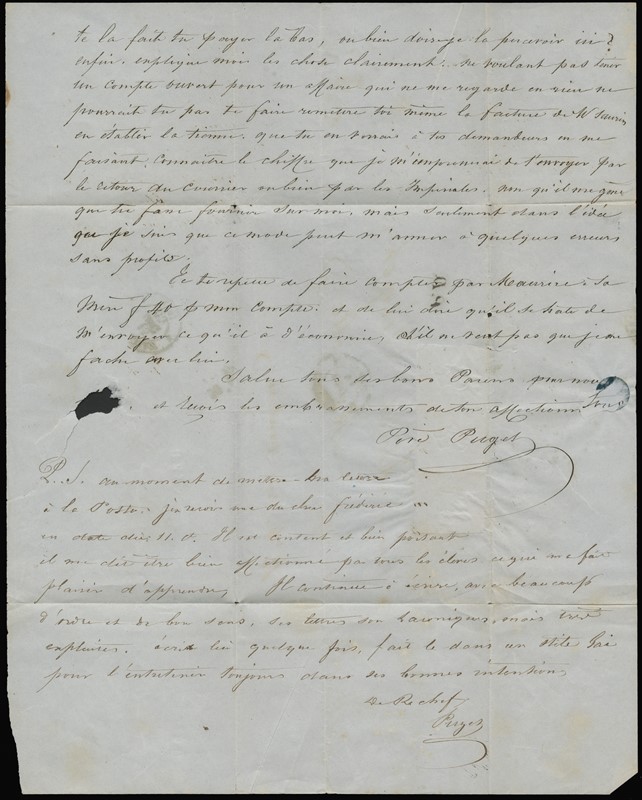 te la fait tu payer la bas, ou bien dois-je la percevoir ici?
enfin, explique moi les chose clairement: ne voulant pas tenir
un compte ouvert pour un affaire qui ne me regarde en rien ne
pourrait tu pas te faire remettre toi même la facture de W
en établir la tienne, que tu en verrais à tes demandeurs en me
faisant connaître le chiffre que je m'empresserai de t'envoyer par
le retour du Courrier ou bien par les Impériales. non qu'il me gêne
que tu fasse fournir sur moi, mais seulement dans l'idée
que je suis que ce mode peut m'amener à quelques erreurs
sans profits.
Je te répète de faire compter par Meaurice à sa
Mère f 40 p mon Compte: et de lui dire qu'il se hate de
m'envoyer ce qu'il à d'économies, s'il ne veut pas que je me
fache avec lui.
Salue tous ses bons Parens pour nous
et reçois les embrassements de ton affectionné
Père Puget
P. S. au moment de mettre ma lettre
à la Poste, j'en reçois une du cher frédéric
en date du 11 ct. Il est content et bien portant
il me dit être bien affectionné par tous les élèves ce qui me fait
plaisir d'apprendre. Il continue à écrire, avec beaucoup
d'ordre et de bon sens, ses lettres son laconiques, mais très
explicites. écrit lui quelque fois, fait le dans un stile gai
pour l'entretenir toujours dans ses bonnes intentions
De Rechef
Puget